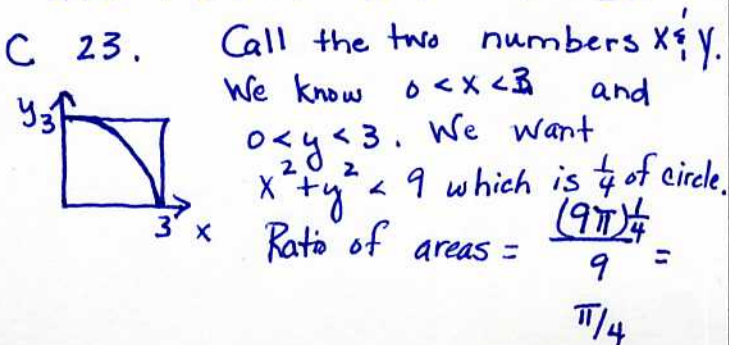 C 23. Call the two numbers x & y.
We know 0 < x < 3 and
y 3 0 < y < 3. We want
x² + y² < 9 which is 1/4 of circle.
3 x Ratio of areas = (9π)1/4 / 9 =
π/4